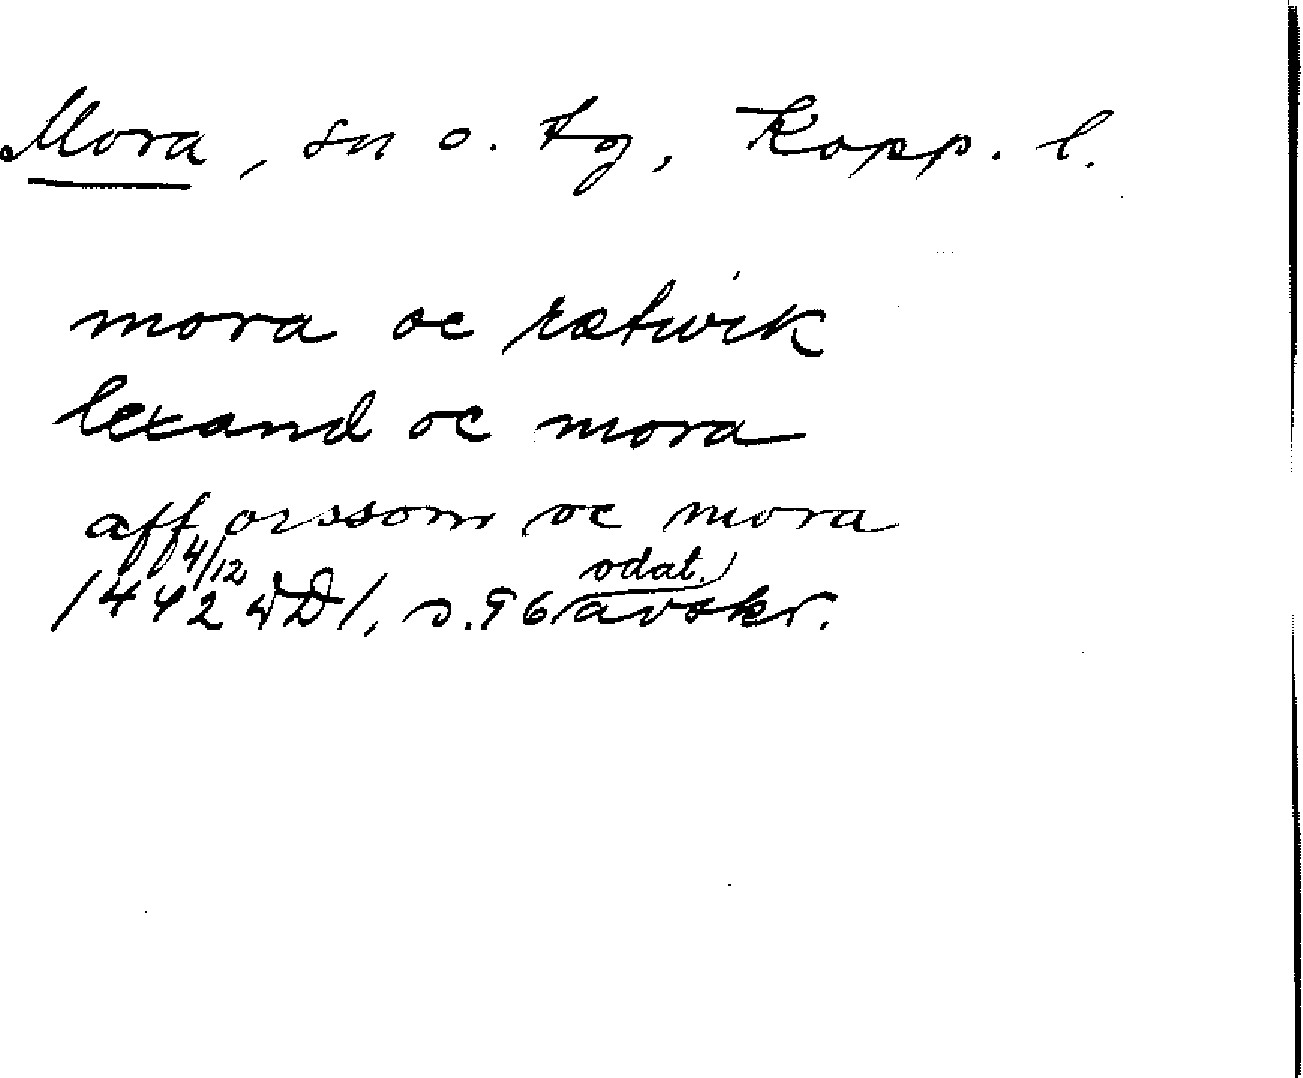 Mora, sn o. tg, Kopp. l.
mora oc rætwik
lexand oc mora
aff orssom oc mora
1442 4/12 DD 1, s. 96 odat. avskr.